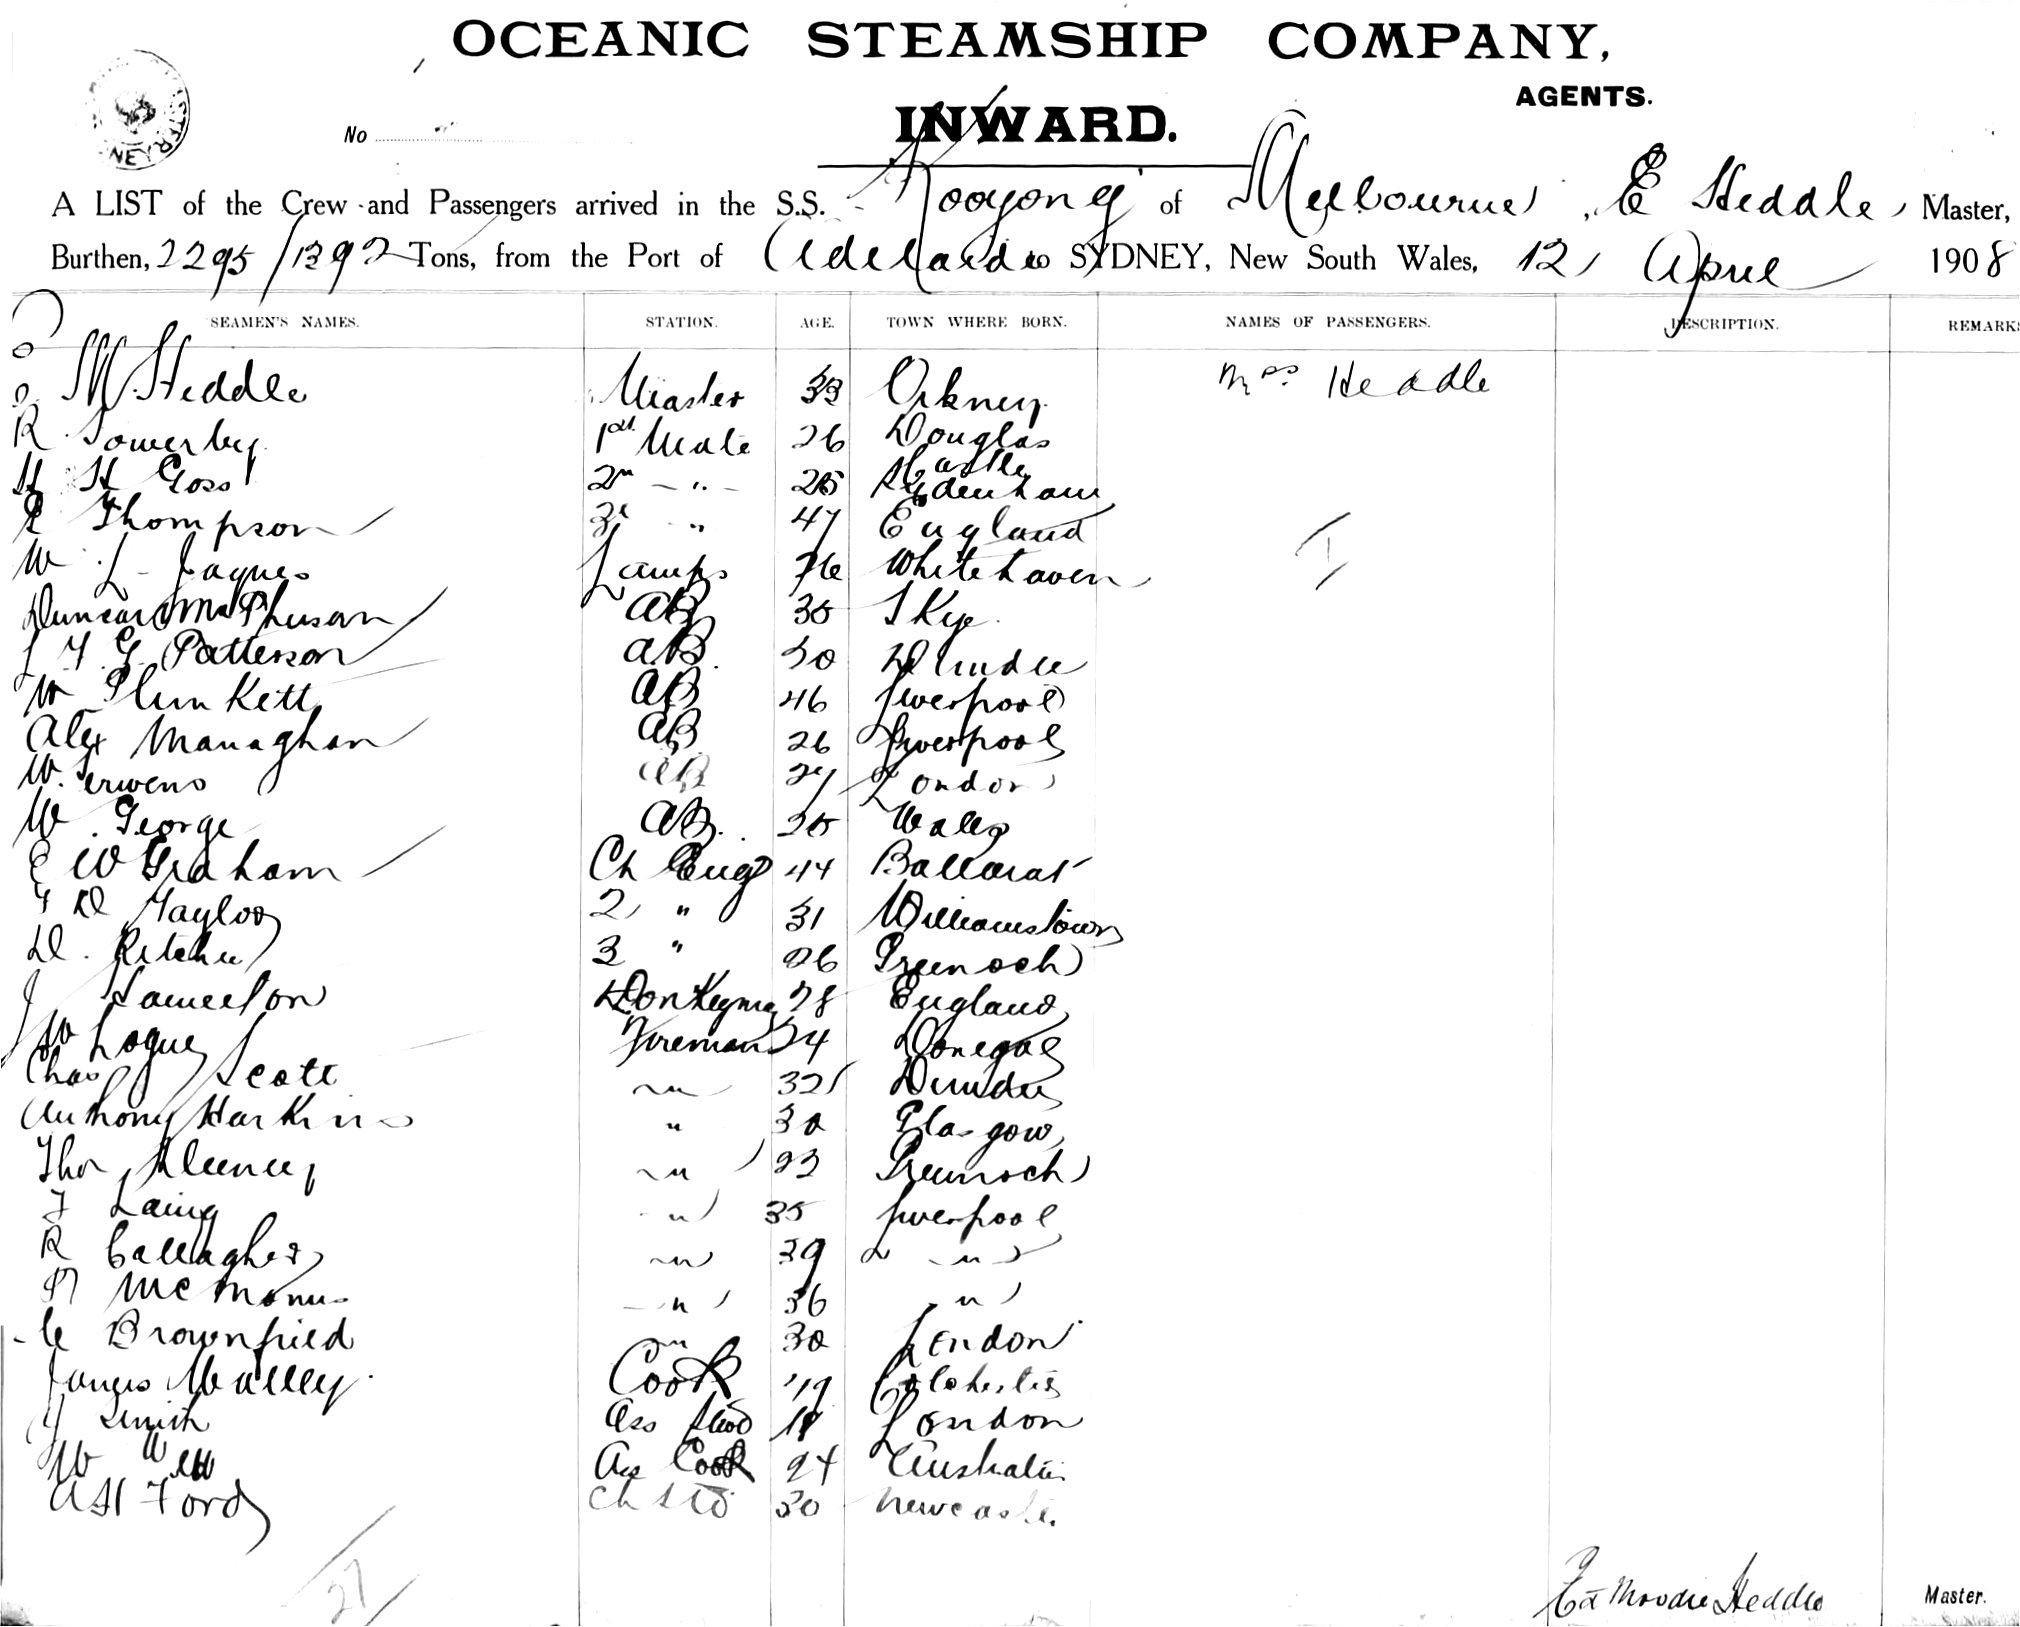 OCEANIC STEAMSHIP COMPANY,
AGENTS.
INWARD.
No
A LIST of the Crew and Passengers arrived in the S.S. Kooyong of Melbourne, E Heddle, Master,
Burthen, 2295/1392 Tons, from the Port of Adelaide to SYDNEY, New South Wales, 12 April 1908
SEAMEN'S NAMES. STATION. AGE. TOWN WHERE BORN. NAMES OF PASSENGERS. DESCRIPTION. REMARKS
M Heddle Master 33 Orkney Mrs Heddle
R Sowerby 1st Mate 26 Douglas
Castle
H H Goss 2n " 25 Sydenham
R Thompson 3r " 47 England
W L Jaques Lamps 76 Whitehaven
Duncan McPherson AB 35 Skye
J F G Patterson AB 30 Dundee
W Plunkett AB 46 Liverpool
Alex Managhan AB 26 Liverpool
W. AB 27 London
W George AB 25 Wales
E W Graham Ch Eng 44 Ballarat
F D Taylor 2 " 31 Williamstown
D. Ritchie 3 " 26 Greenock
J Donkeyman 28 England
W Logue Fireman 24 Donegal
Chas Scott " 32 Dundee
Anthony Harkins " 30 Glasgow
Thos " 23 Greenock
F Laing " 35 Liverpool
R Gallagher " 39 "
P McManus " 36 "
C Brownfield " 30 London
James Walley Cook 19 Colchester
J Smith Ass Stwd 18 London
W Ass Cook 24 Australia
A H Ford Ch Std 30 Newcastle
27
Ed Moodie Heddle Master.